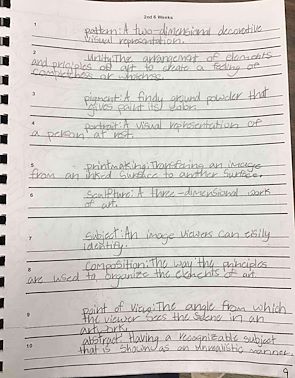 2nd 6 Weeks
1 pattern: A two-dimensional decorative
visual representation.
2 Unity: The arrangement of elements
and priciples of art to create a feeling of
completness or
3 pigment: A findy ground powder that
gives paint its
4 portrait: A visual representation of
a person at rest.
5 printmaking: Transfering an image
from an inked surface to another surface.
6 sculpture: A three-dimensional work
of art.
7 Subject: An image viewers can
identify.
8 composition: The way the principles
are used to organize the elements of art
9 point of view: The angle from which
the viewer sees the scene in an
artwork.
10 abstract Having a recognizable subject
that is shown as an manner.
9